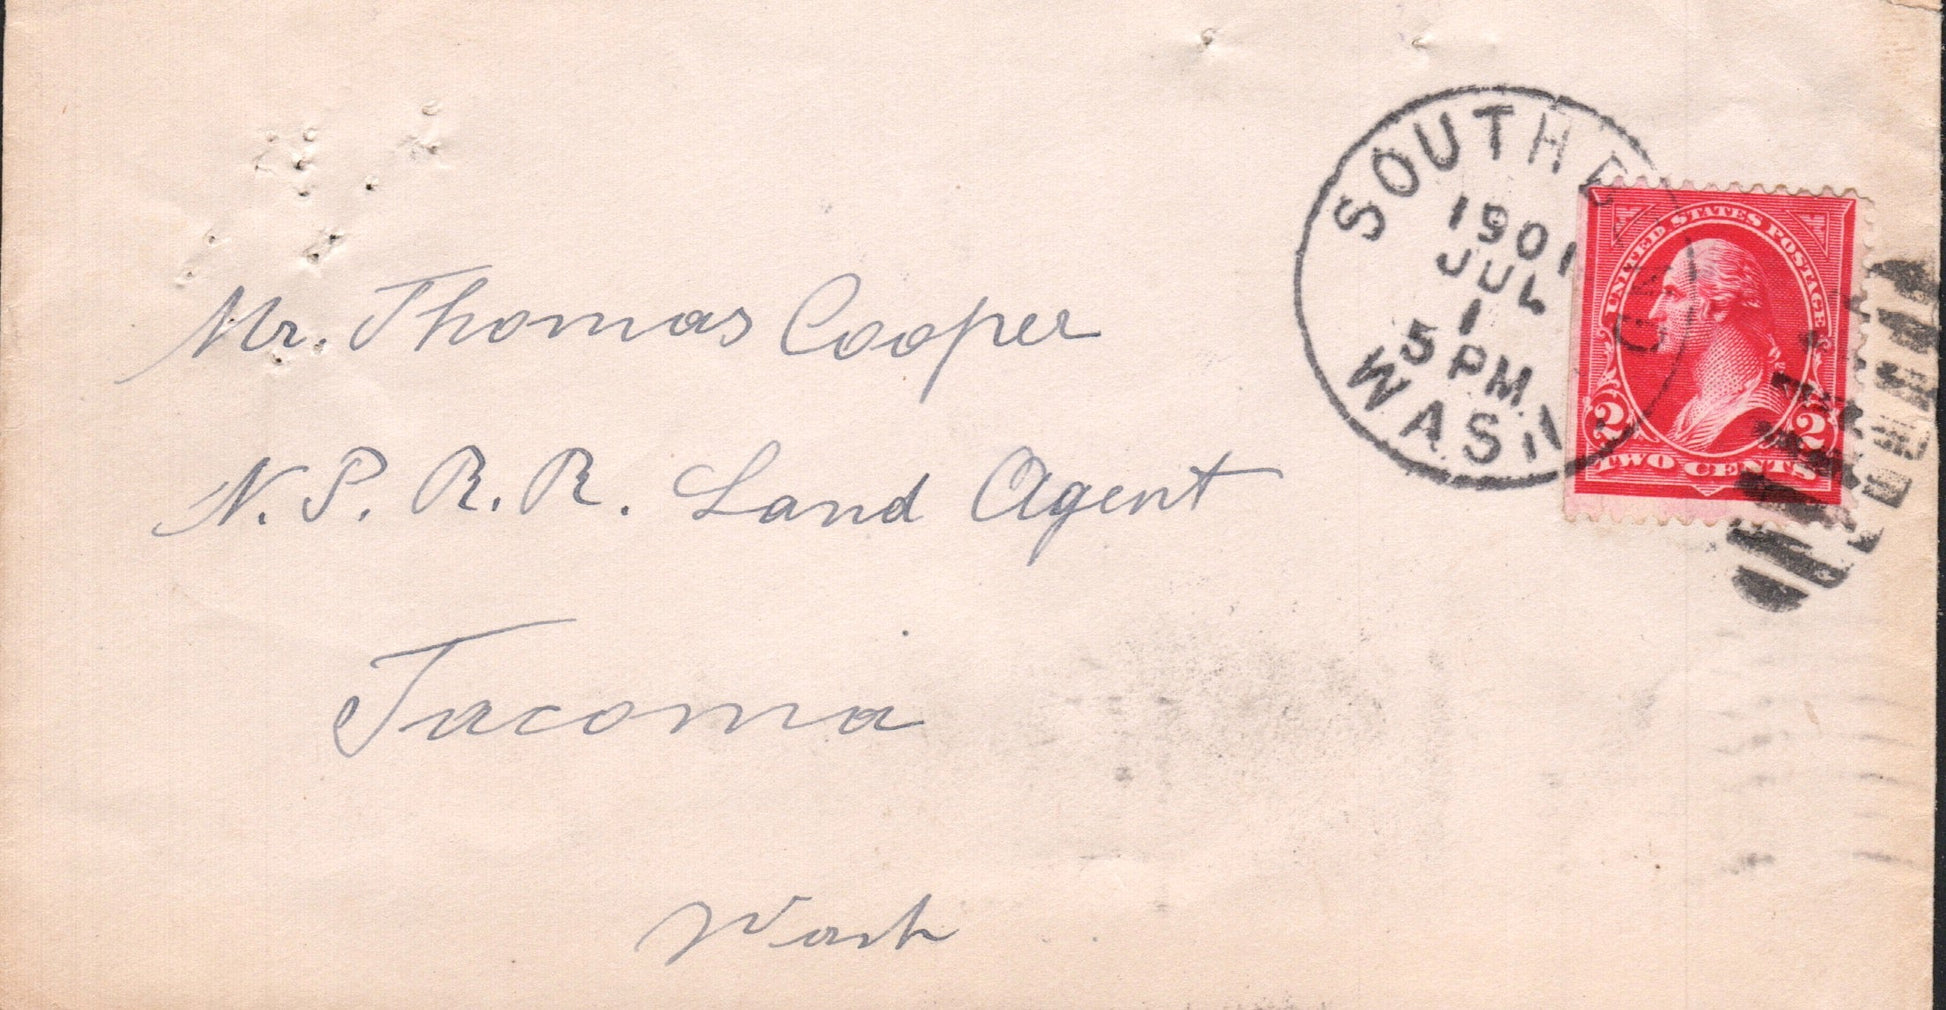 SOUTH BEND
1901
JUL
1
5 PM
WASH.
UNITED STATES POSTAGE
2 2
TWO CENTS
Mr. Thomas Cooper
N. P. R. R. Land Agent
Tacoma
Wash